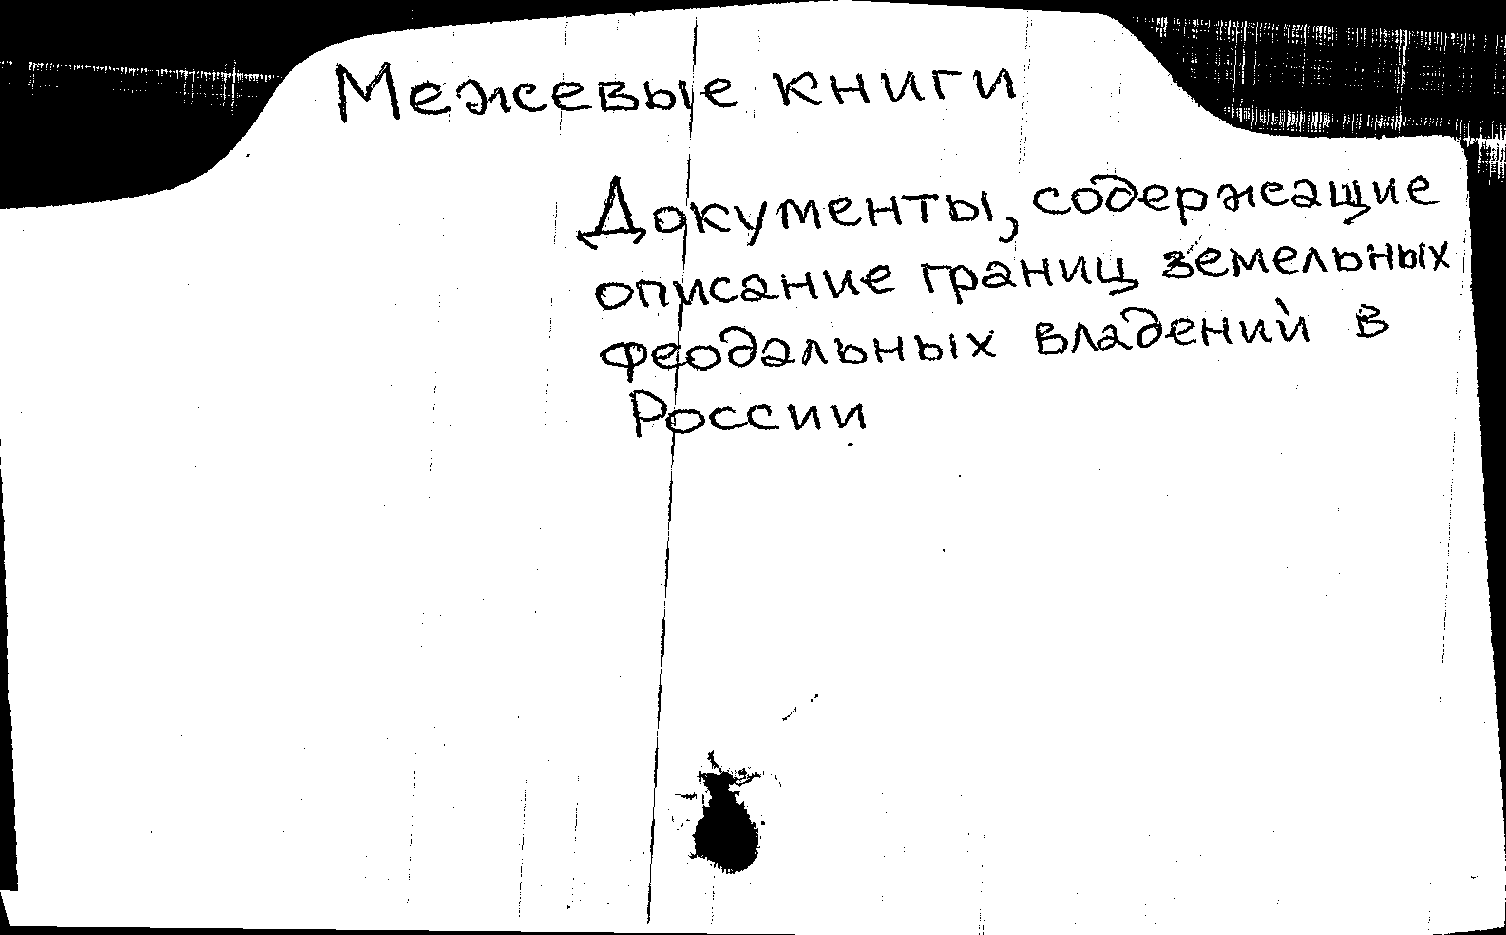 Межевые книги
Документы, содержащие
описание границ земельных
феодальных владений в
России